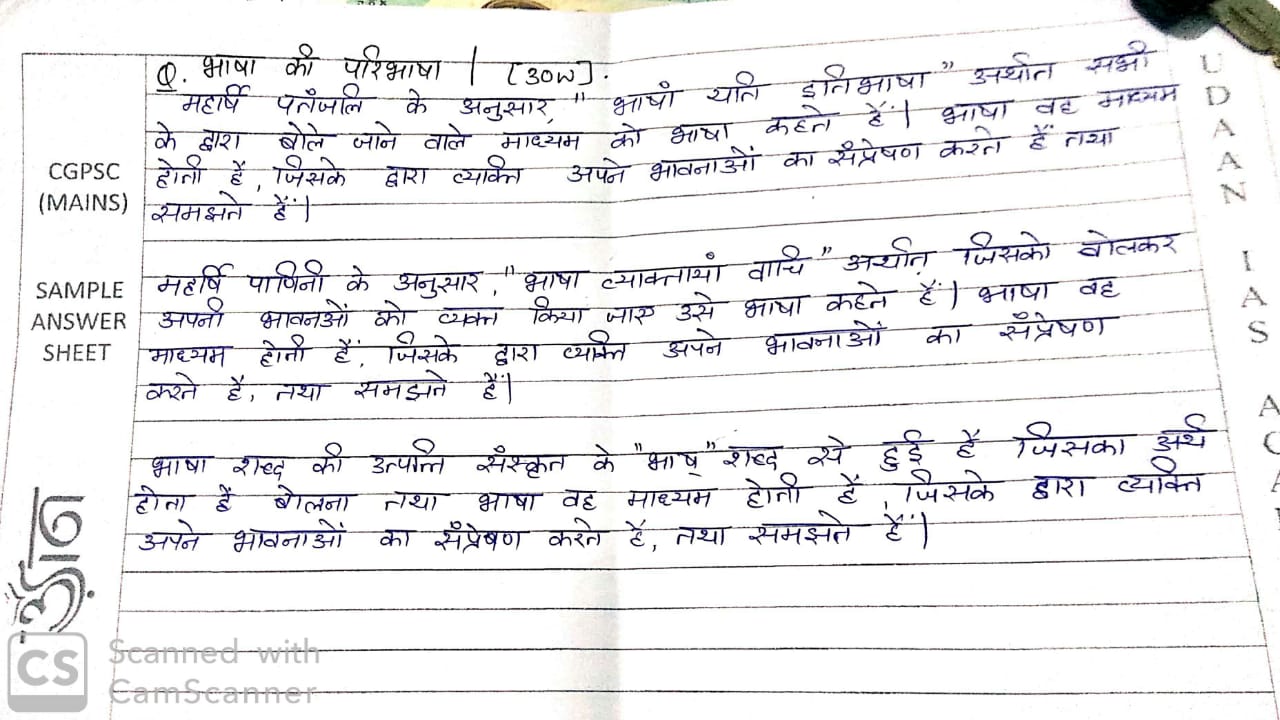 Q. भाषा की परिभाषा | [30W].
महार्षि पतंजलि के अनुसार, " भाषां यति इतिभाषा " अर्थात सभी
के द्वारा बोले जाने वाले माध्यम को भाषा कहते हैं| भाषा वह माध्यम
होती हैं, जिसके द्वारा व्यक्ति अपने भावनाओं का संप्रेषण करते हैं तथा
समझते हैं|
CGPSC
(MAINS)
महार्षि पाणिनी के अनुसार, "भाषा व्याक्तायां वाचि " अर्थात् जिसको बोलकर
अपनी भावनओं को व्यक्त किया जाए उसे भाषा कहते हैं| भाषा वह
माध्यम होती हैं, जिसके द्वारा व्यक्ति अपने भावनाओं का संप्रेषण
करते हैं, तथा समझते हैं|
SAMPLE
ANSWER
SHEET
भाषा शब्द की उत्पत्ति संस्कृत के "भाष्" शब्द से हुई हैं जिसका अर्थ
होता हैं बोलना तथा भाषा वह माध्यम होती हैं, जिसके द्वारा व्यक्ति
अपने भावनाओं का संप्रेषण करते हैं, तथा समझते हैं|
उड़ान
UDAAN IAS ACA
CS Scanned with
CamScanner